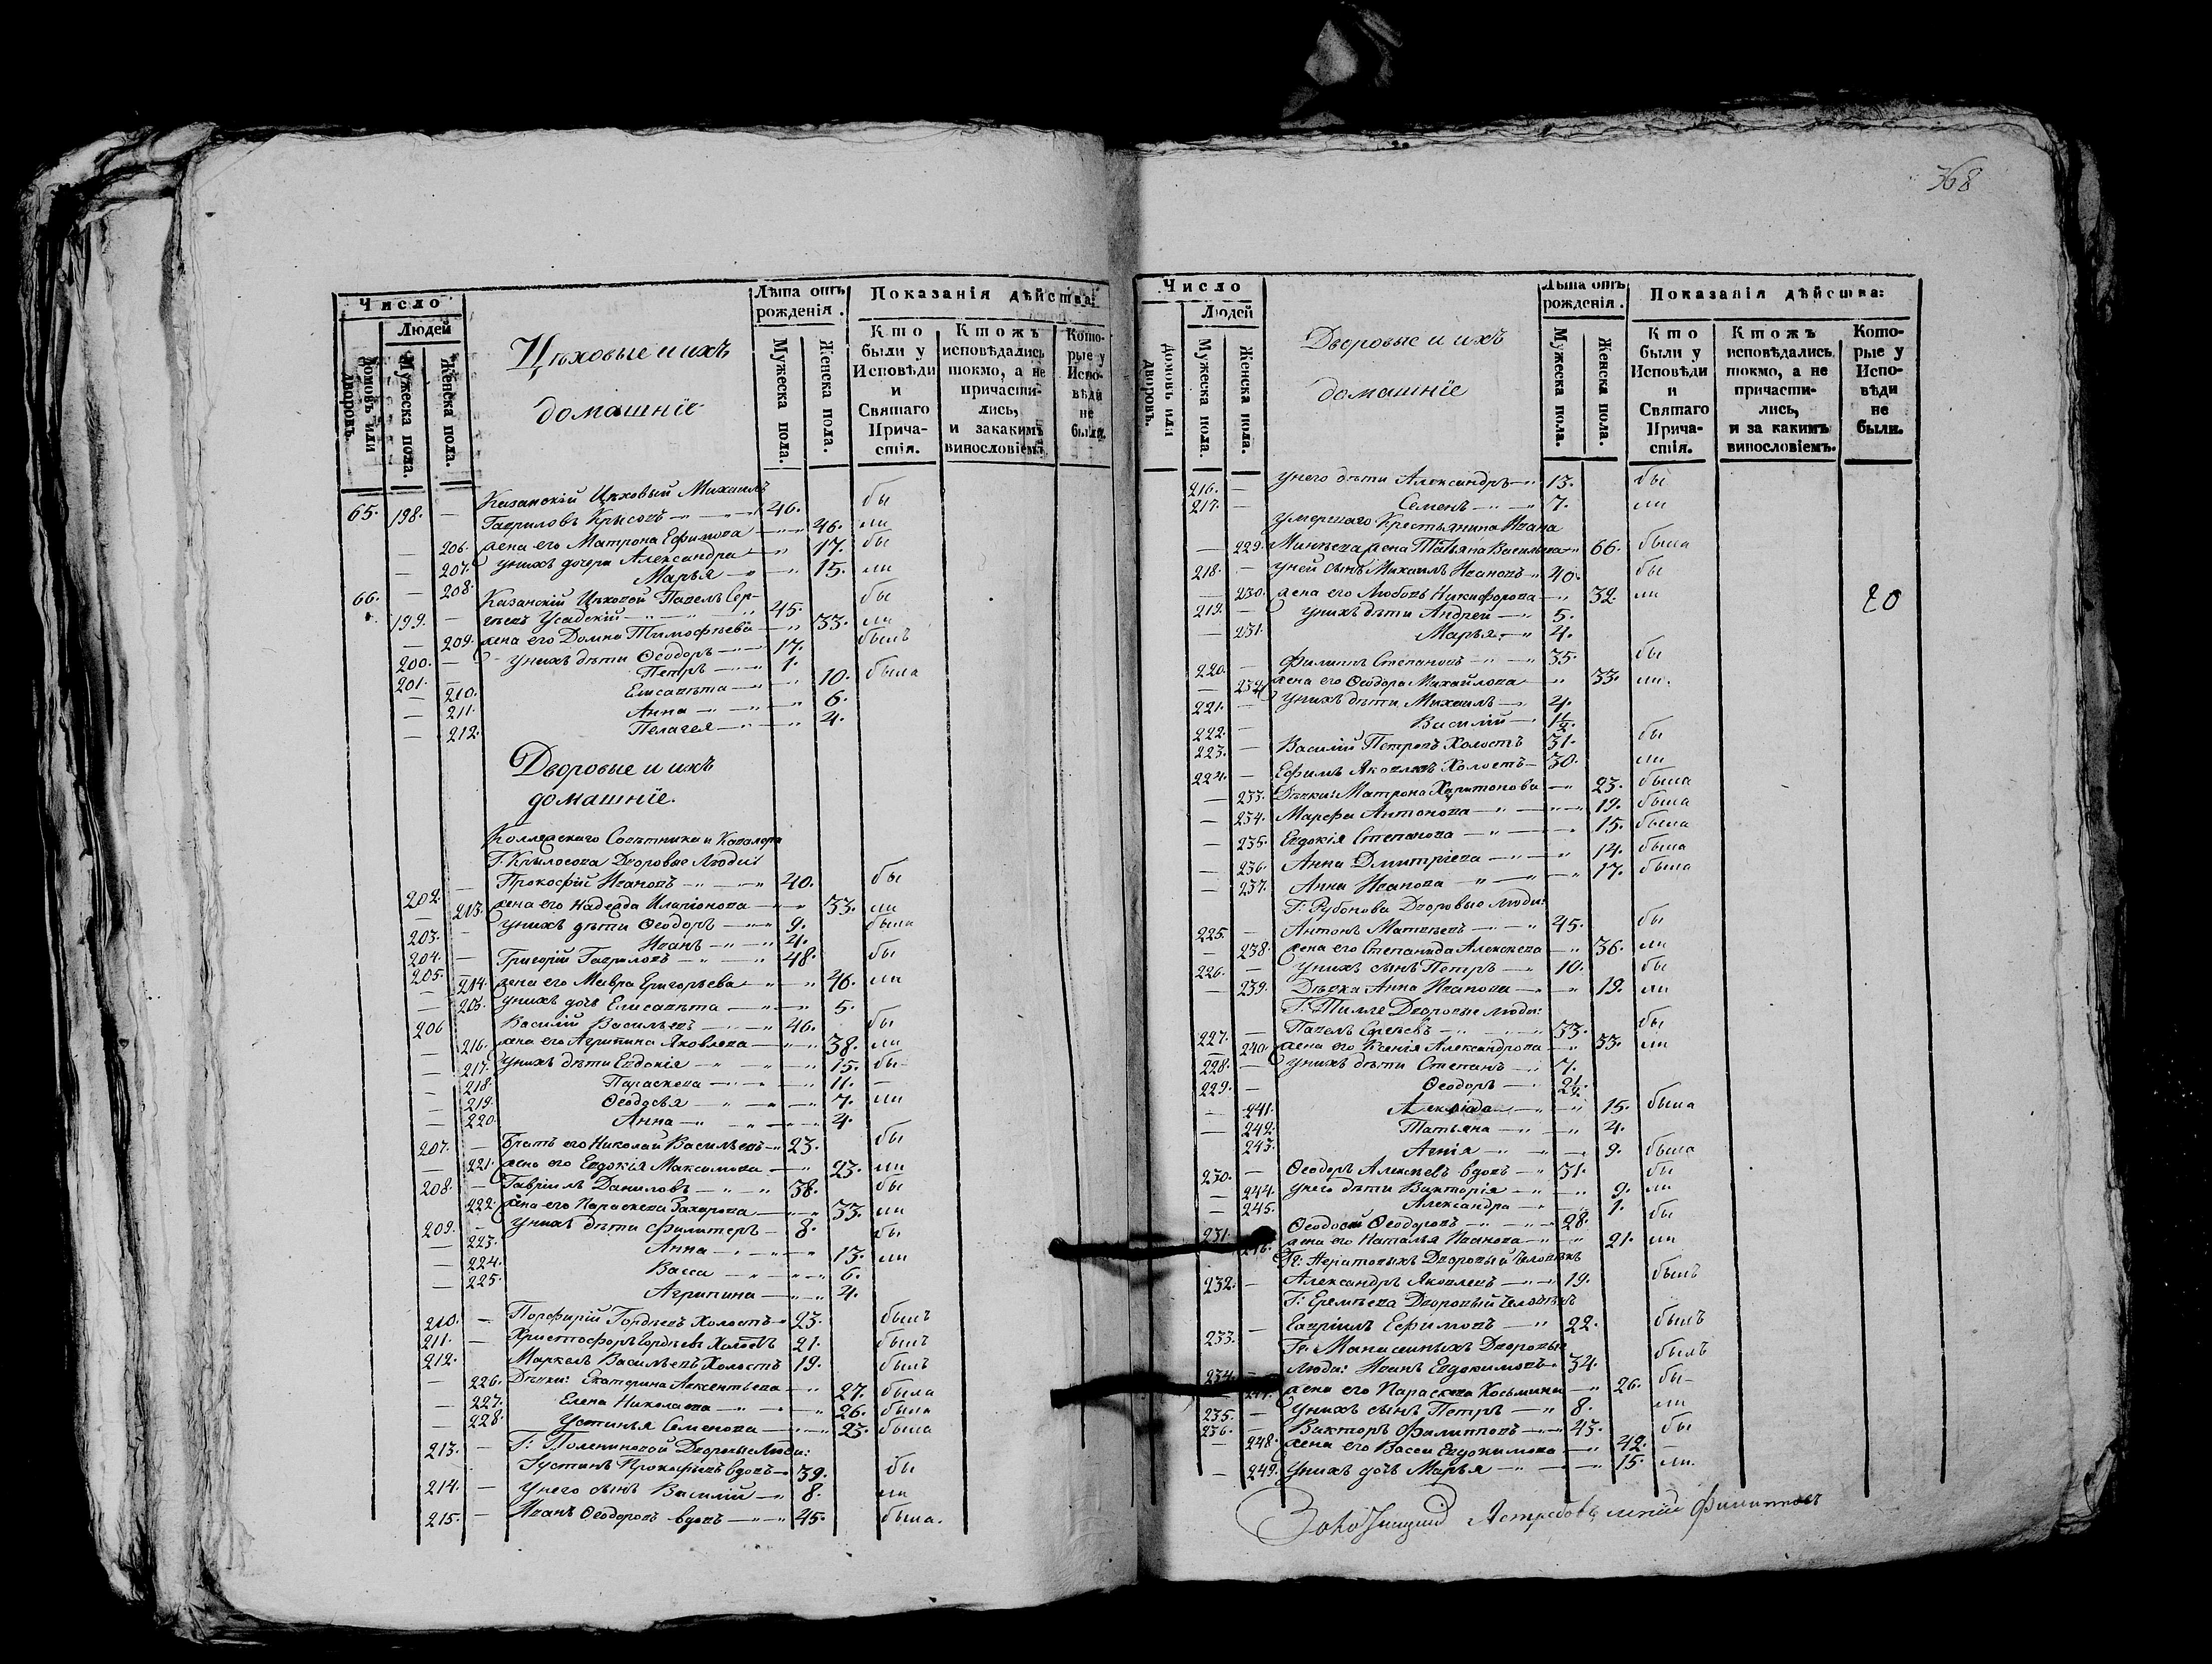 368
Число
Людей
Домовъ или дворовъ.
Мужеска пола.
Женска пола.
Цѣховые и ихъ
домашніе
Лѣта отъ рожденія.
Мужеска пола.
Женска пола.
Показанія дѣйства:
Кто были у Исповѣди и Святаго Прича-стія.
Ктожъ исповѣдались токмо, а не причасти-лись, и закакимъ винословіемъ.
Кото-рые у Испо-вѣди не были.
Казанскій Цѣховый Михаилъ
65. 198. — Гавриловъ Крысовъ 46. бы
— 206. жена его Матрона Ефимова 46. ли
— 207. у нихъ дочери Александра 17. бы
— 208. Марья 15. ли
66. Казанскій Цѣховой Павелъ Сер-
199. — гѣевъ Усадскій 45. бы
— 209. жена его Домна Тимофѣева 33. ли
200. — у нихъ дѣти Ѳеодоръ 17. былъ
201. — Петръ 1.
— 210. Елисавѣта 10. была
— 211. Анна 6.
— 212. Пелагея 4.
Дворовые и ихъ
домашніе.
Коллежскаго Совѣтника и Кавалера
Г. Крылосова Дворовые Люди:
202. — Прокофій Ивановъ 40. бы
— 213. жена его Надежда Иларіонова 33. ли
203. — у нихъ дѣти Ѳеодоръ 9. была
204. — Иванъ 4.
205. — Григорій Гавриловъ 48. бы
— 214. жена его Мавра Григорьева 46. ли
— 215. у нихъ дочь Елисавѣта 5.
206 Василій Васильевъ 46. бы
— 216. жена его Агрипина Яковлева 38. ли
— 217. у нихъ дѣти Евдокія 15. бы-
— 218. Параскева 11. —
— 219. Ѳеодосья 7. ли
— 220. Анна 4.
207. — Братъ его Николай Васильевъ 23. бы
— 221. жена его Евдокія Максимова 23. ли
208. — Гавріилъ Даниловъ 38. бы
— 222. жена его Параскева Захарова 33. ли
209. — у нихъ дѣти Филитеръ 8. бы
— 223. Анна 13. ли
— 224. Васса 6.
— 225. Агрипина 4.
210. — Порфирій Гордѣевъ Холостъ 23. былъ
211. — Христофоръ Гордѣевъ Холостъ 21. былъ
212. — Маркелъ Васильевъ Холостъ 19. былъ
— 226. Дѣвки: Екатерина Авксентьева 27. была
— 227. Елена Николаева 26. была
— 228. Устинья Семенова 23. была
Г: Дворовые Люди:
213. — Густинъ Прокофьевъ вдовъ 39. бы
214. — у него сынъ Василій 8. ли
215. — Иванъ Ѳеодоровъ вдовъ 45. была.
Число
Людей
Домовъ или дворовъ.
Мужеска пола.
Женска пола.
Дворовые и ихъ
домашніе
Лѣта отъ рожденія.
Мужеска пола.
Женска пола.
Показанія дѣйства:
Кто были у Исповѣди и Святаго Прича-стія.
Ктожъ исповѣдались токмо, а не причасти-лись, и за какимъ винословіемъ.
Кото-рые у Испо-вѣди не были.
216. — у него дѣти Александръ 13. бы
217. — Семенъ 7. ли
Умершаго Крестьянина Ивана
— 229. Минѣева жена Татьяна Васильева 66. была
218. — у ней сынъ Михаилъ Ивановъ 40. бы
— 230. жена его Любовь Никифорова 32. ли
20
219. — у нихъ дѣти Андрей 5.
— 231. Марья 4.
220. — Филиппъ Степановъ 35. бы
— 232. жена его Ѳеодора Михайлова 33. ли.
221. — у нихъ дѣти Михаилъ 4.
222. — Василій 1½.
223. — Василій Петровъ Холостъ 31. бы
224. — Ефимъ Яковлевъ Холостъ 30. ли
— 233. Дѣвки: Матрона Харитонова 23. была
— 234. Марфа Антонова 19. была
— 235. Евдокія Степанова 15. была
— 236. Анна Дмитріева 14. была
— 237. Анна Иванова 17. была
Г: Рубонова Дворовые люди:
225. — Антонъ Матвѣевъ 45. бы
— 238. жена его Степанида Алексѣева 36. ли
226. — у нихъ сынъ Петръ 10. бы
— 239. Дѣвка Анна Иванова 19. ли
Г: Тилле Дворовые люди:
227. — Павелъ 33. бы
— 240. жена его Ксенія Александрова 33. ли
228. — у нихъ дѣти Степанъ 7.
229. — Ѳеодоръ 2½.
— 241. 15. была
— 242. Татьяна 4.
243. 9. была
230. — Ѳеодоръ Алексѣевъ вдовъ 31. бы
— 244. у него дѣти Викторія 9. ли
— 245. Александра 1.
231. Ѳеодосій Ѳеодоровъ 28. бы
246. жена его Наталья Иванова 21. ли
Гг: Нератовыхъ Дворовый Человѣкъ
232. — Александръ Яковлевъ 19. былъ
Г: Еремѣева Дворовый Человѣкъ
233. — Гавріилъ Ефимовъ 22. былъ
Гг. Манасеиныхъ Дворовые
234. люди: Иванъ Евдокимовъ 34. былъ
247. жена его Параскева Косьмина 26. бы-
235. — у нихъ сынъ Петръ 8. ли
236. — Викторъ Филипповъ 43. бы
— 248. жена его Васса Евдокимова 42. —
— 249. у нихъ дочь Марья 15. ли.